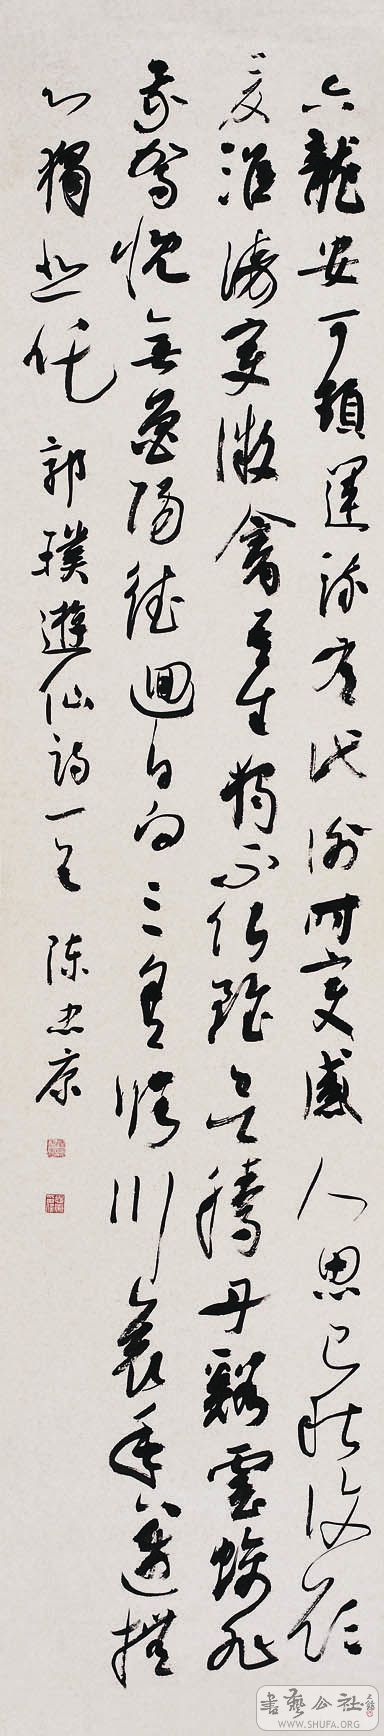 六龍安可頓運流有代謝時變感人思已秋復願
夏淮海變微禽吾生獨不化雖欲騰丹谿雲螭非
我駕愧無魯陽德迴日向三舍臨川哀年邁撫
心獨悲吒 郭璞遊仙詩一首 陈忠康
書藝公社
WWW.SHUFA.ORG